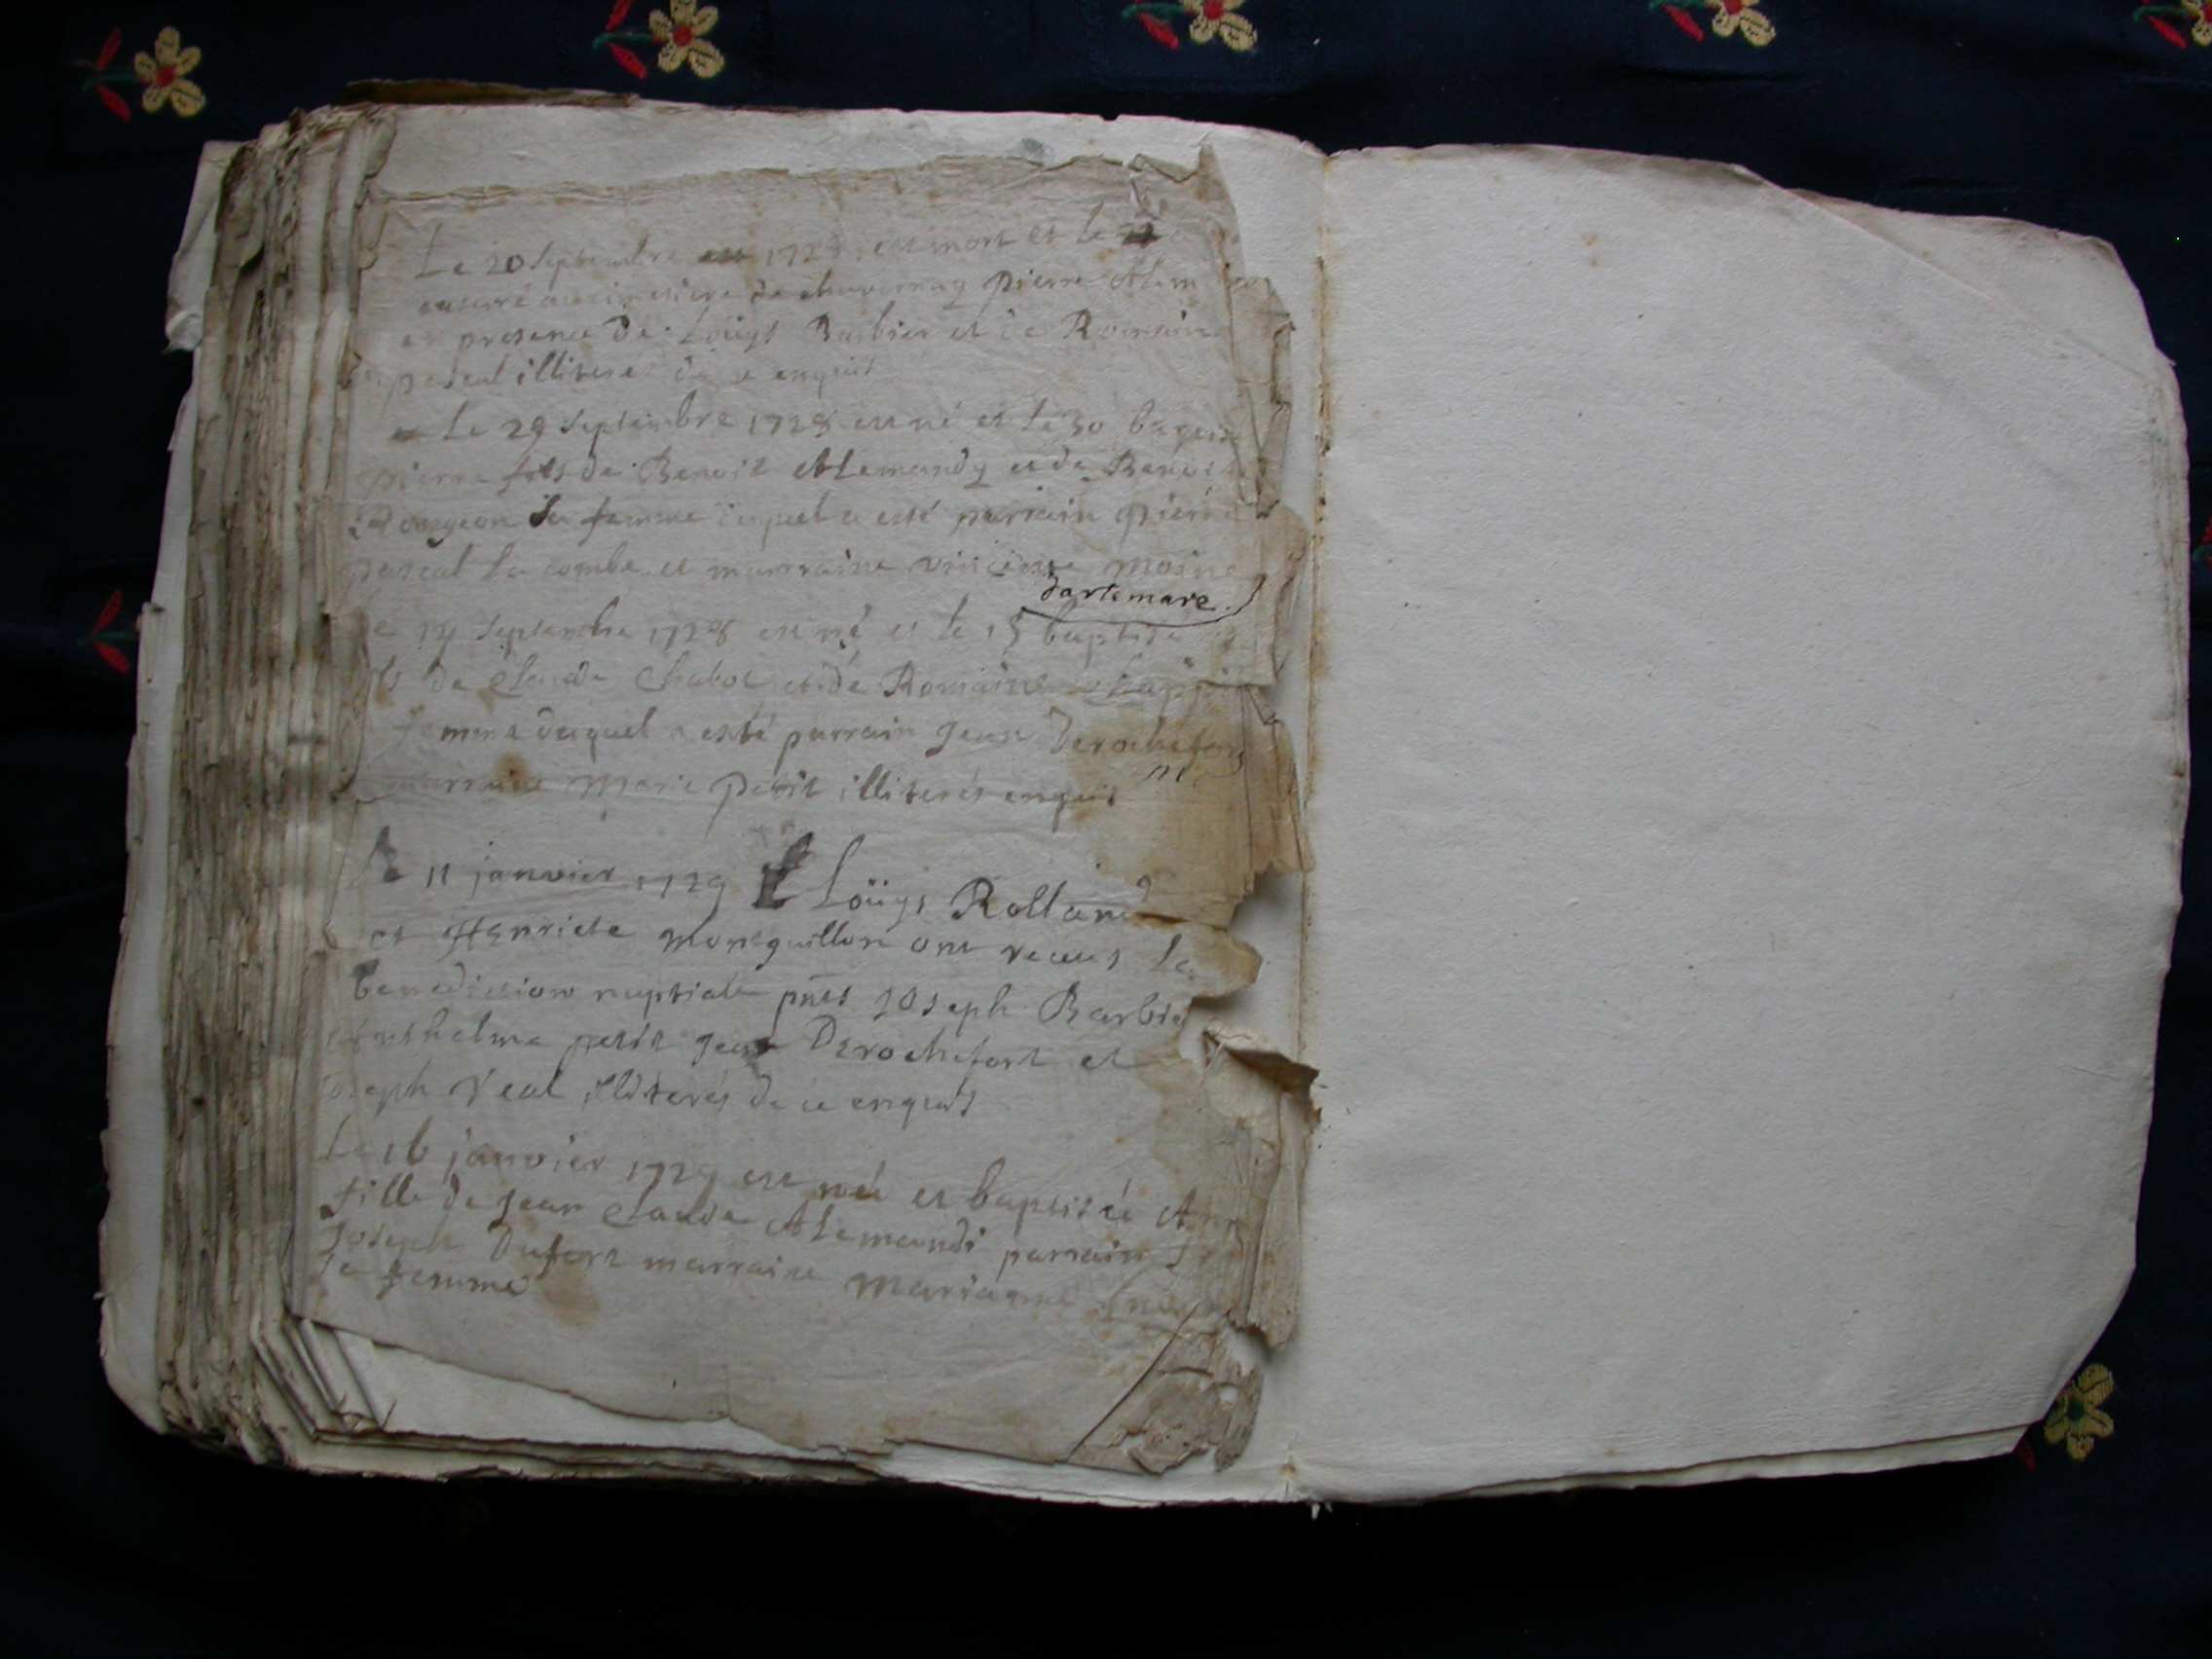 Le 20 Septembre 1728 est mort et le
enterré au cimetiere de chavornay pierre
en presence de Loüys Barbier et de Romain
pascal illiteres de ce enquis
Le 29 Septembre 1728 est né et le 30 baptisé
pierre fils de Benoit Allemandy et de
sa femme duquel a esté parrain pierre
pascal La combe et marraine moine
dartemare
14 Septembre 1728 est né et le 15 baptisé
fils de Claude Chabot et de Romaine
femme duquel a esté parrain Jean Derochefort
marraine Marie petit illiterés enquis
Le 11 janvier 1729 Loüys Rolland
et Henriete Montguillon ont receus La
benediction nuptiale pñts Joseph Barbier
anthelme petit Jean Derochefort et
joseph Veal illiterés de ce enquis
Le 16 janvier 1729 est née et baptisée
fille de Jean Claude Allemandi parrain
Joseph Dufort marraine Marianne
Sa femme